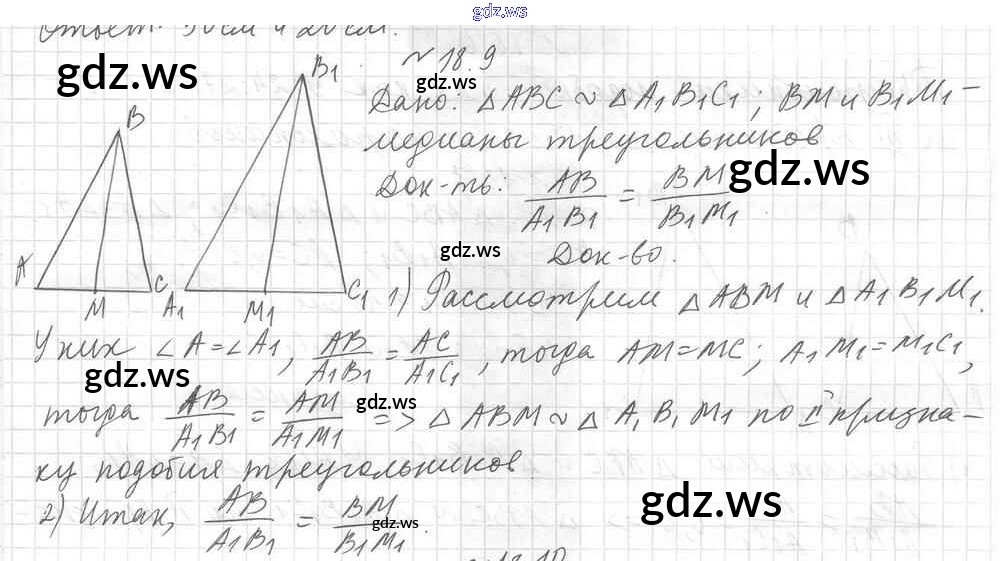 gdz.ws
Ответ: 30 см и 20 см.
gdz.ws
№ 18.9
gdz.ws
B
B1
A
M
C
A1
M1
C1
Дано: △ABC ~ △A1B1C1; BM и B1M1 –
медианы треугольников
gdz.ws
Док-ть: AB/A1B1 = BM/B1M1.
gdz.ws
Док-во.
1) Рассмотрим △ABM и △A1B1M1.
У них ∠A=∠A1, AB/A1B1 = AC/A1C1, тогда AM=MC; A1M1=M1C1,
gdz.ws
тогда AB/A1B1 = AM/A1M1 => △ABM ~ △A1B1M1 по II призна-
gdz.ws
ку подобия треугольников
2) Итак, AB/A1B1 = BM/B1M1.
gdz.ws
gdz.ws
18.10